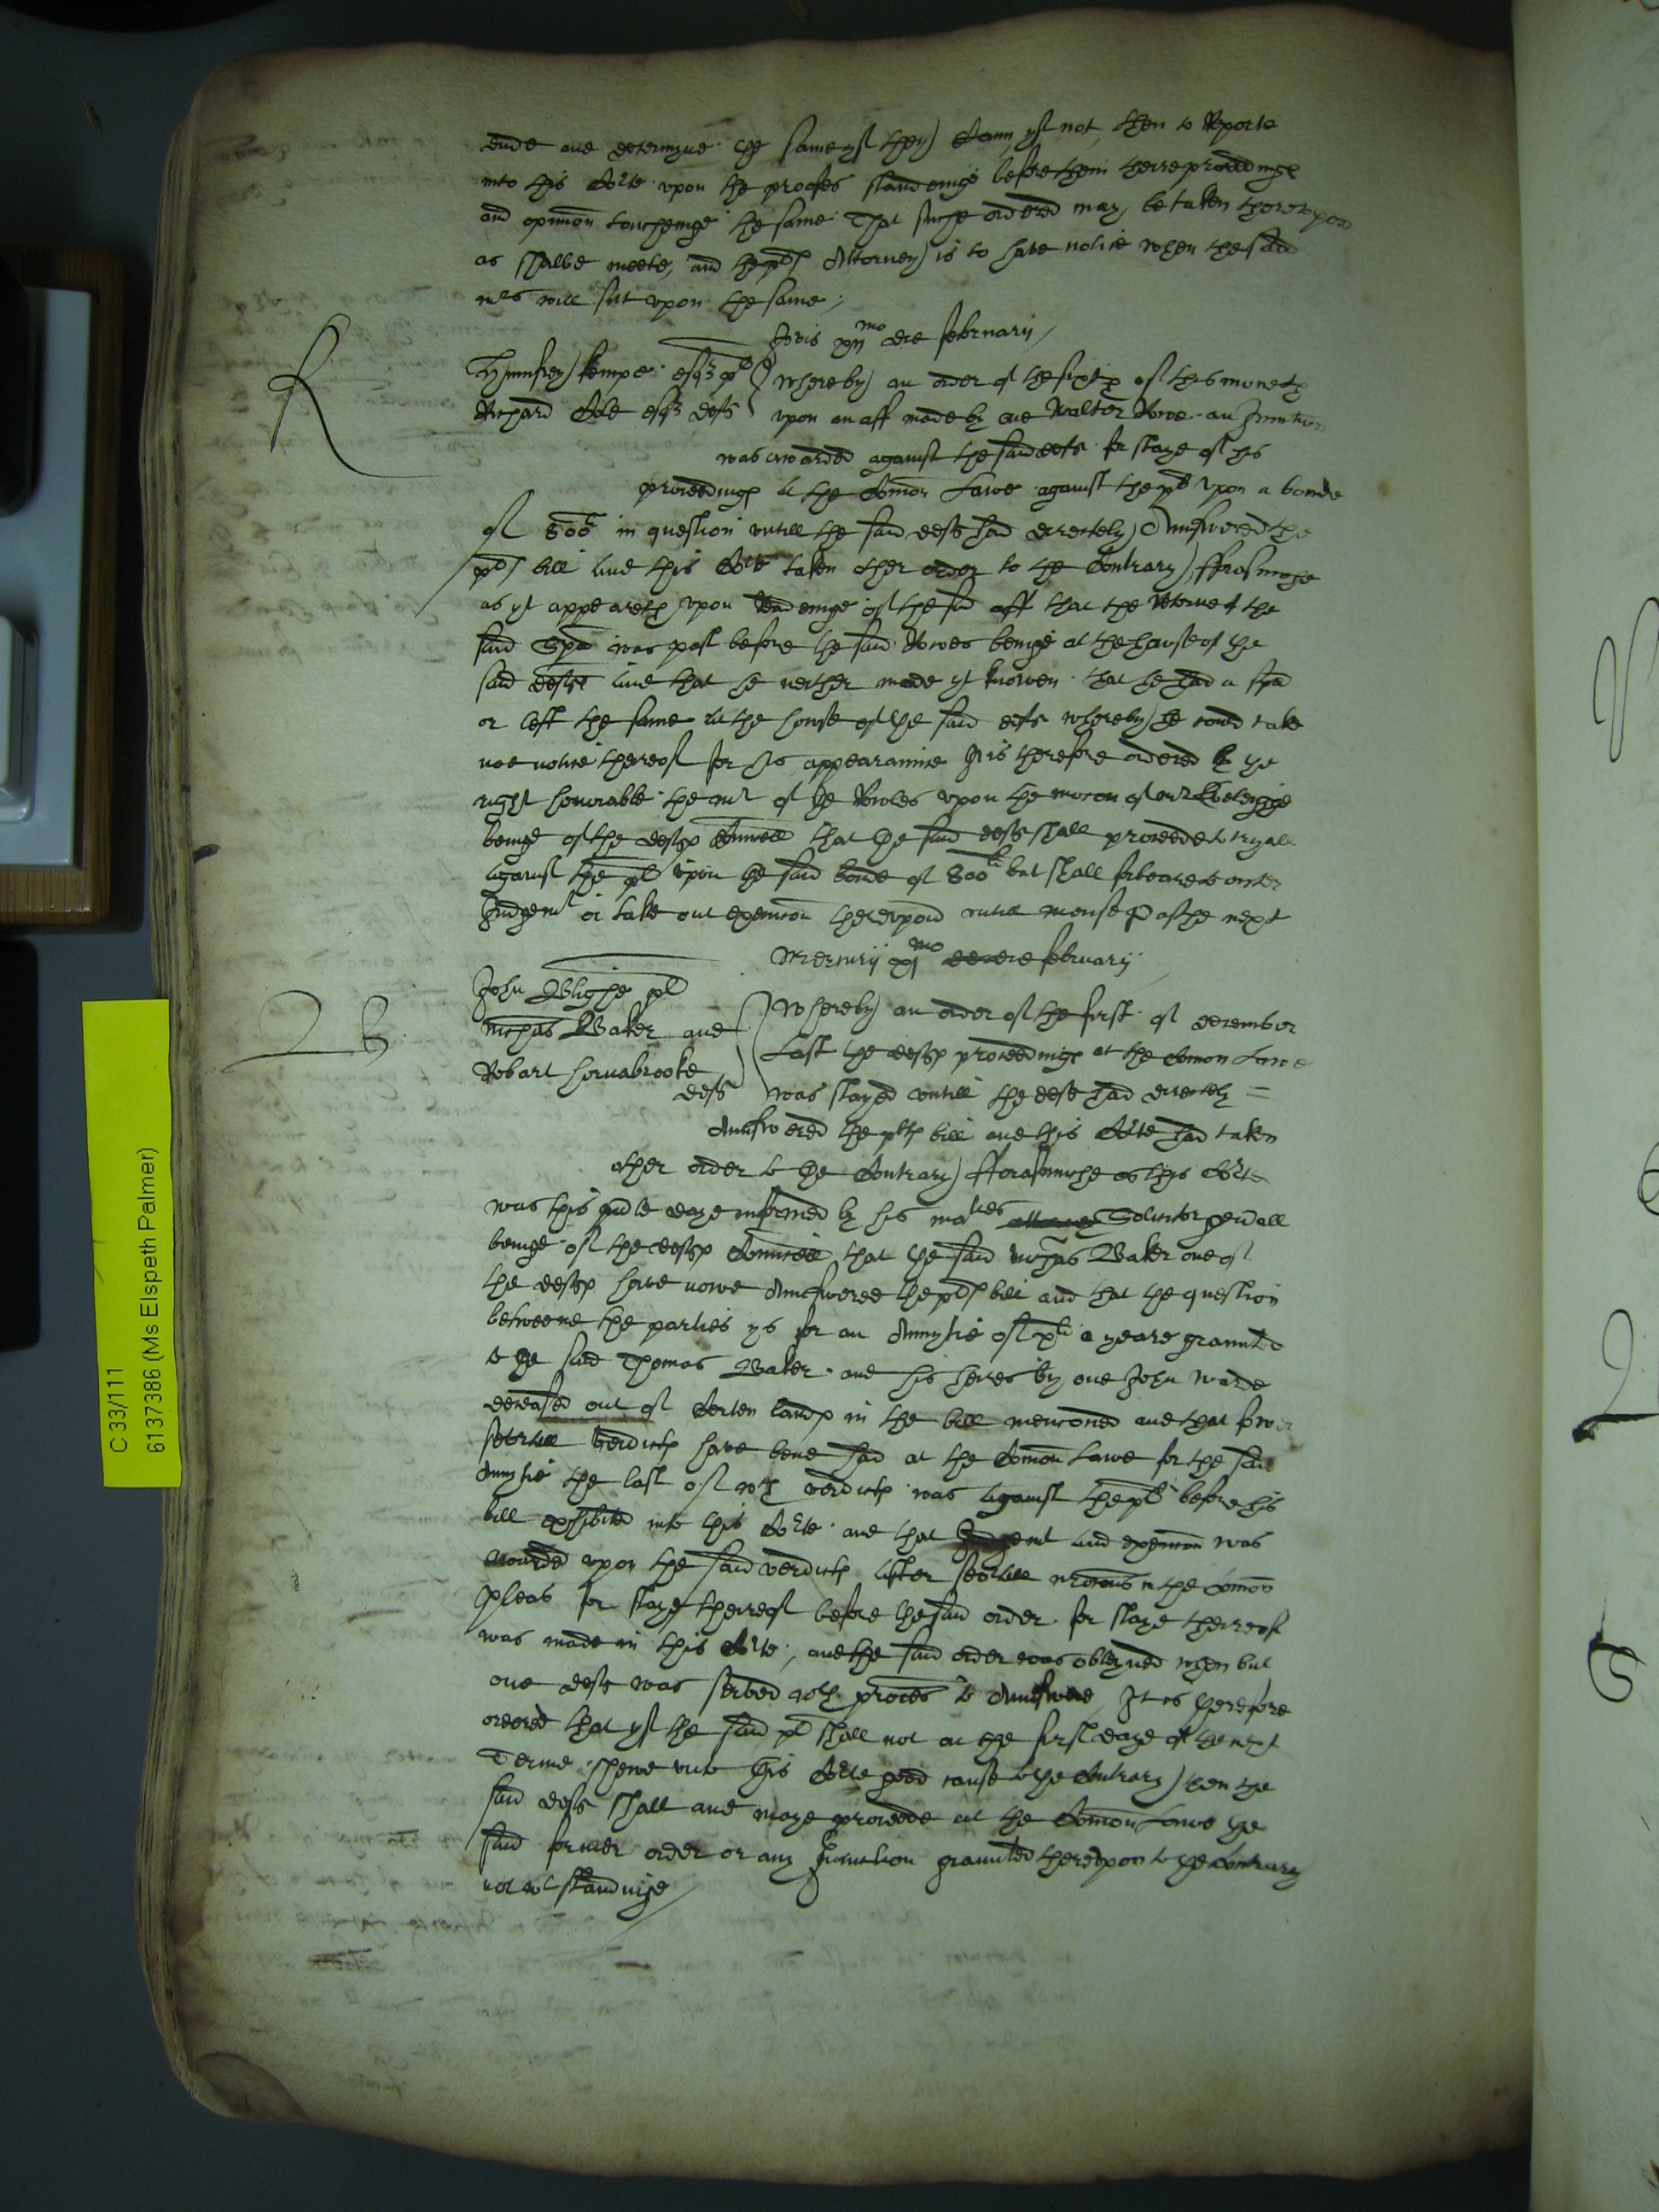 ende and determyne the same yf they Cann yf not then to Reporte
into this Corte vpon the proofes standeinge before them theire proceedinge
and opinion toucheinge the same That suche ordered may be taken therevpon
as shalbe meete, and the pls Attorney is to have notice when the said
mrs will sitt vpon the same;
Jovis xijmo die februarij
K
Humfrey kempe esqr pl
Richard Cole esqr deft
Whereby an order of the sixth of this moneth
vpon an aff made by one Walter Rowe an Iniunction
was awarded against the said deft for staye of his
proceedings at the Comon Lawe against the pl vpon a bonde
of 800li in question vntill the said deft had directely Aunswered the
pls bill and this Corte taken other order to the Contrary, fforasmoche
as yt appeareth vpon Readeinge of the said aff that the Retorne of the
said Spa was past before the said Rowes beinge at the house of the
said deft and that he neither made yt knowen that he had a spa
or left the same at the house of the said deft whereby he could take
noe notice thereof for his appearaunce It is therefore ordered by the
right honorable the mr of the Rowles vpon the mocon of mr
beinge of the defts Councell that the said deft shall proceede to tryall
against the pl vpon the said bonde of 800li but shall forbeare to enter
Iudgemt or take out execucon therevpon vntill mense Pasche next
Mercurij xjmo die februarij
B
John Blighe pl
Thomas Baker and
Robart hornabrooke
defts
Whereby an order of the first of december
Last the defts proceedings at the Comon Lawe
was stayed vntill the deft had directely =
Aunswered the pls bill and this Corte had taken
other order to the Contrary fforasmuche as this Corte
was this pnte daye informed by his maties Solicitor generall
beinge of the defts Councell that the said Thomas Baker one of
the defts have nowe Aunswered the pls bill and that the question
betweene the parties ys for an Annytie of xli a yeare graunted
to the said Thomas Baker and his heires by one John Warde
deceased out of Certen lands in the bill mencioned and that
severall verdicts have bene had at the Comon Lawe for the said
Annytie the last of wch verdicts was against the pl before his
bill exhibited into this Corte and that Iudgemt and execucon was
awarded vpon the said verdicts after severall mocons in the Comon
Pleas for staye thereof before the said order for staye thereof
was made in this Corte, and the said order was obteyned when but
one deft was served wth proces to Aunswere It is therefore
ordered that yf the said pl shall not at the first daye of the next
Terme shewe vnto this Corte good cause to the Contrary then the
said defts shall and maye proceede at the Comon Lawe the
said former order or any Iniunction graunted therevpon to the Contrary
notwthstandinge
C 33/111
6137386 (Ms Elspeth Palmer)